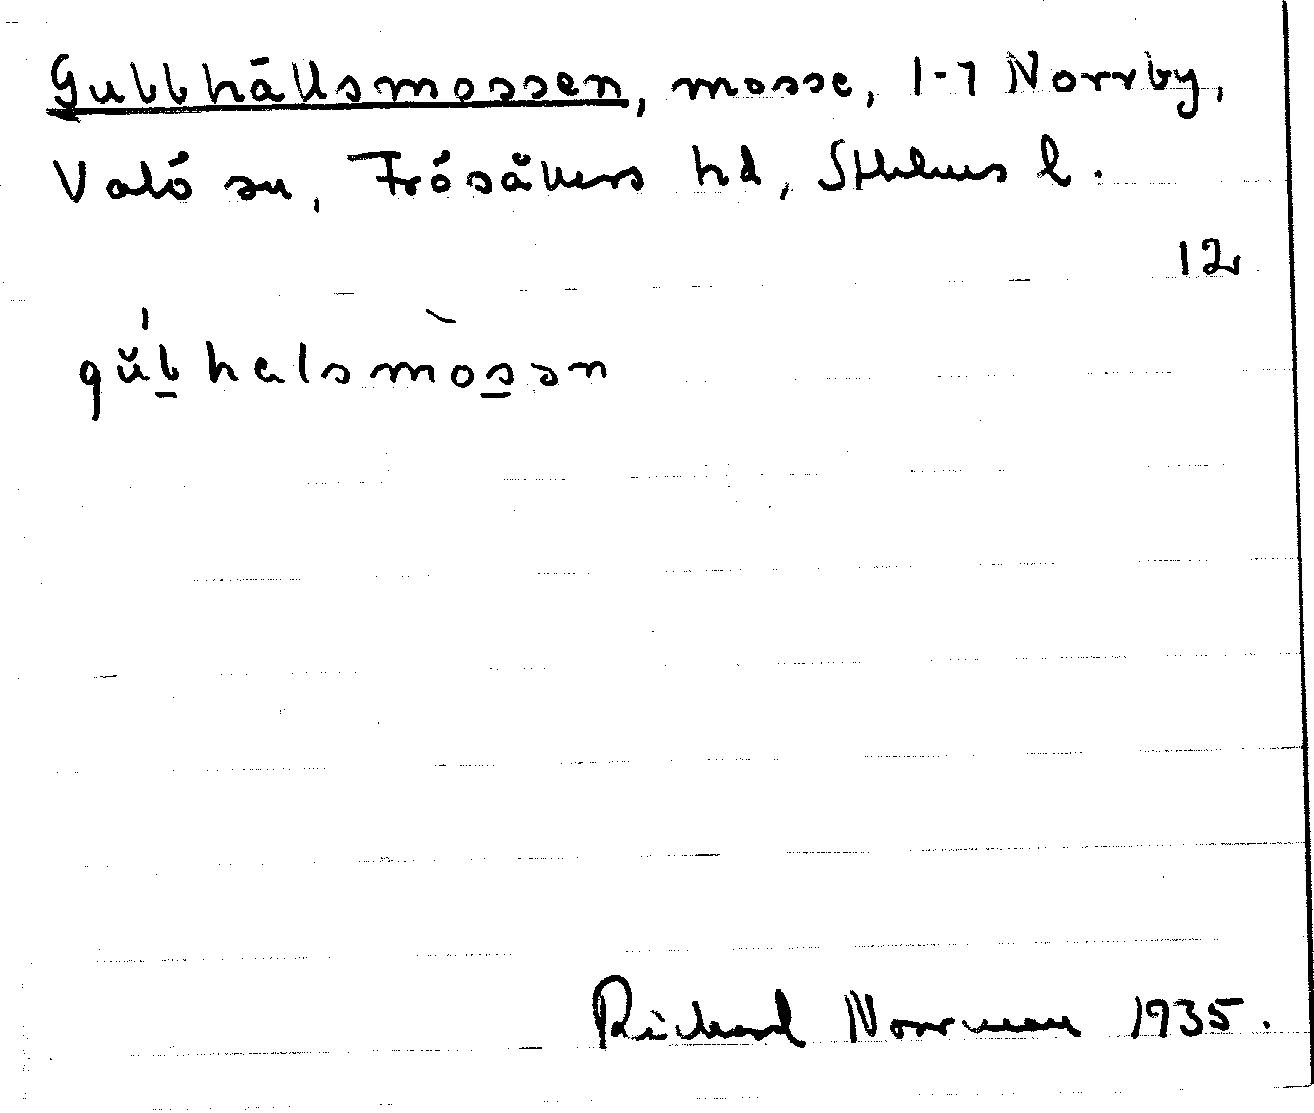 Gubbhällsmossen, mosse, 1-7 Norrby,
Valö sn, Frösåkers hd, Sthlms l.
12
gúb̲halsmòs̲ən
Richard Norrman 1935.